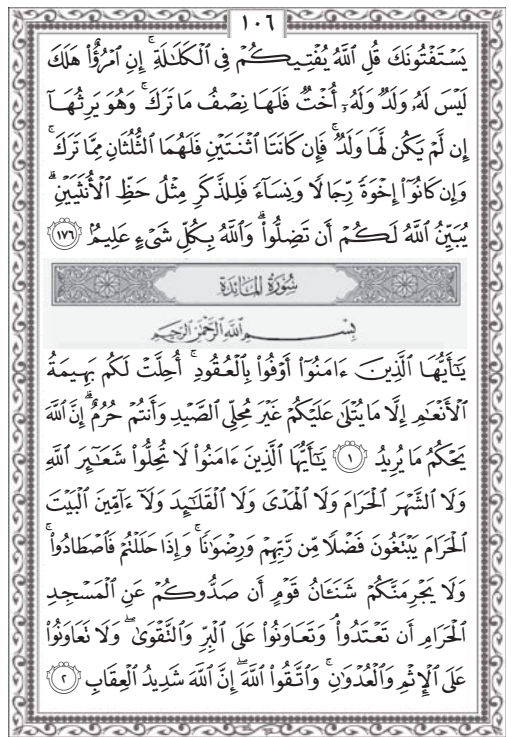 ١٠٦
يَسۡتَفۡتُونَكَ قُلِ ٱللَّهُ يُفۡتِيكُمۡ فِي ٱلۡكَلَٰلَةِۚ إِنِ ٱمۡرُؤٌاْ هَلَكَ
لَيۡسَ لَهُۥ وَلَدٞ وَلَهُۥٓ أُخۡتٞ فَلَهَا نِصۡفُ مَا تَرَكَۚ وَهُوَ يَرِثُهَآ
إِن لَّمۡ يَكُن لَّهَا وَلَدٞۚ فَإِن كَانَتَا ٱثۡنَتَيۡنِ فَلَهُمَا ٱلثُّلُثَانِ مِمَّا تَرَكَۚ
وَإِن كَانُوٓاْ إِخۡوَةٗ رِّجَالٗا وَنِسَآءٗ فَلِلذَّكَرِ مِثۡلُ حَظِّ ٱلۡأُنثَيَيۡنِۗ
يُبَيِّنُ ٱللَّهُ لَكُمۡ أَن تَضِلُّواْۗ وَٱللَّهُ بِكُلِّ شَيۡءٍ عَلِيمُۢ ١٧٦
سُورَةُ المَائدَةِ
بِسۡمِ ٱللَّهِ ٱلرَّحۡمَٰنِ ٱلرَّحِيمِ
يَٰٓأَيُّهَا ٱلَّذِينَ ءَامَنُوٓاْ أَوۡفُواْ بِٱلۡعُقُودِۚ أُحِلَّتۡ لَكُم بَهِيمَةُ
ٱلۡأَنۡعَٰمِ إِلَّا مَا يُتۡلَىٰ عَلَيۡكُمۡ غَيۡرَ مُحِلِّي ٱلصَّيۡدِ وَأَنتُمۡ حُرُمٌۗ إِنَّ ٱللَّهَ
يَحۡكُمُ مَا يُرِيدُ ١ يَٰٓأَيُّهَا ٱلَّذِينَ ءَامَنُواْ لَا تُحِلُّواْ شَعَٰٓئِرَ ٱللَّهِ
وَلَا ٱلشَّهۡرَ ٱلۡحَرَامَ وَلَا ٱلۡهَدۡيَ وَلَا ٱلۡقَلَٰٓئِدَ وَلَآ ءَآمِّينَ ٱلۡبَيۡتَ
ٱلۡحَرَامَ يَبۡتَغُونَ فَضۡلٗا مِّن رَّبِّهِمۡ وَرِضۡوَٰنٗاۚ وَإِذَا حَلَلۡتُمۡ فَٱصۡطَادُواْۚ
وَلَا يَجۡرِمَنَّكُمۡ شَنَـَٔانُ قَوۡمٍ أَن صَدُّوكُمۡ عَنِ ٱلۡمَسۡجِدِ
ٱلۡحَرَامِ أَن تَعۡتَدُواْۘ وَتَعَاوَنُواْ عَلَى ٱلۡبِرِّ وَٱلتَّقۡوَىٰۖ وَلَا تَعَاوَنُواْ
عَلَى ٱلۡإِثۡمِ وَٱلۡعُدۡوَٰنِۚ وَٱتَّقُواْ ٱللَّهَۖ إِنَّ ٱللَّهَ شَدِيدُ ٱلۡعِقَابِ ٢